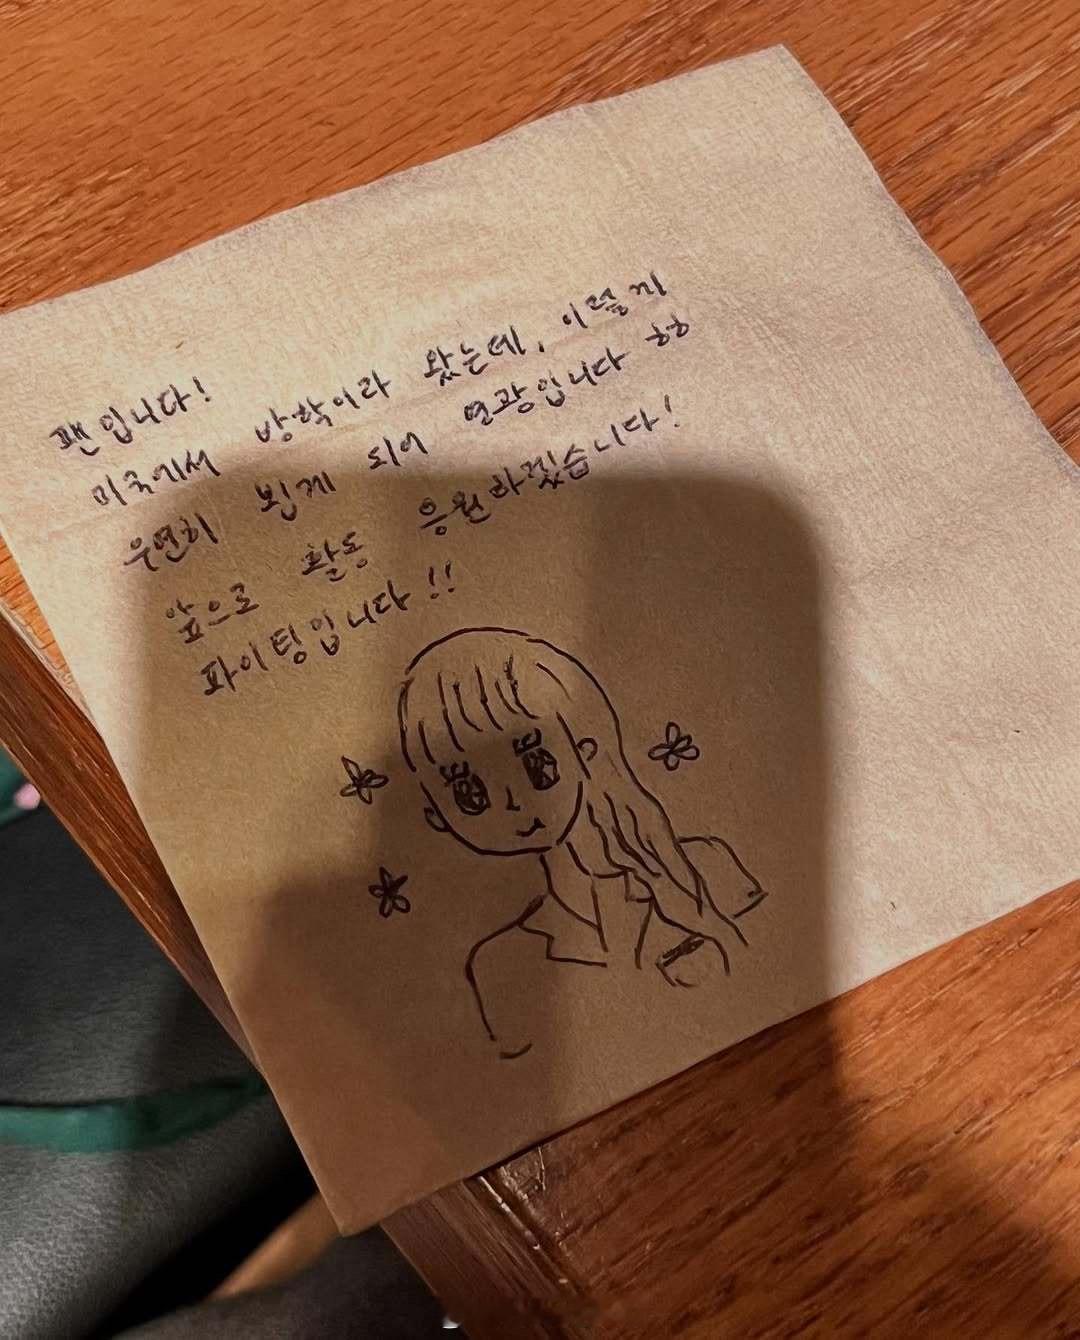 팬입니다!
미국에서 방학이라 왔는데, 이렇게
우연히 뵙게 되어 영광입니다 ㅎㅎ
앞으로 활동 응원하겠습니다!
파이팅입니다!!